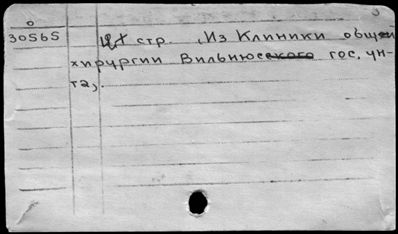 30565 стр. (Из Клиники общей
хирургии Вильнюсского гос. ун-
та).